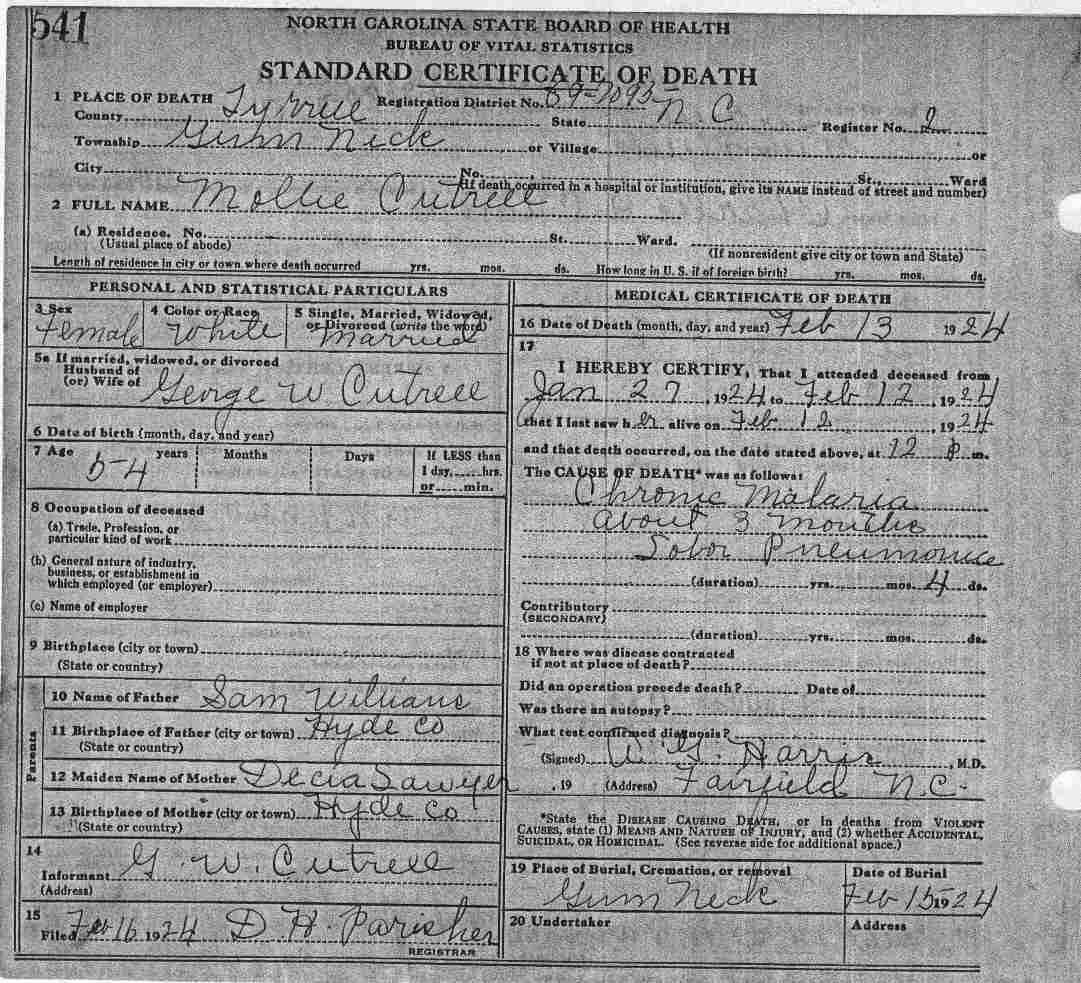 541
NORTH CAROLINA STATE BOARD OF HEALTH
BUREAU OF VITAL STATISTICS
STANDARD CERTIFICATE OF DEATH
1 PLACE OF DEATH
County Tyrrell Registration District No. 89-7095 State N. C Register No. 2
Township Gum Neck or Village or
City No. St., Ward
(If death occurred in a hospital or institution, give its NAME instead of street and number)
2 FULL NAME Mollie Cutrell
(a) Residence. No. St. Ward.
(Usual place of abode) (If nonresident give city or town and State)
Length of residence in city or town where death occurred yrs. mos. ds. How long in U. S. if of foreign birth? yrs. mos. ds.
PERSONAL AND STATISTICAL PARTICULARS
3 Sex
Female
4 Color or Race
White
5 Single, Married, Widowed,
or Divorced (write the word)
Married
5a If married, widowed, or divorced
Husband of
(or) Wife of George W Cutrell
6 Date of birth (month, day, and year)
7 Age 54 years Months Days If LESS than
1 day, hrs.
or min.
8 Occupation of deceased
(a) Trade, Profession, or
particular kind of work
(b) General nature of industry,
business, or establishment in
which employed (or employer)
(c) Name of employer
9 Birthplace (city or town)
(State or country)
Parents
10 Name of Father Sam Williams
11 Birthplace of Father (city or town) Hyde Co
(State or country)
12 Maiden Name of Mother Decia Sawyer
13 Birthplace of Mother (city or town) Hyde Co
(State or country)
14
Informant G. W. Cutrell
(Address)
15
Filed Feb 16 1924 D H Parisher
REGISTRAR
MEDICAL CERTIFICATE OF DEATH
16 Date of Death (month, day, and year) Feb 13 1924
17
I HEREBY CERTIFY, That I attended deceased from
Jan 27, 1924 to Feb 12, 1924
that I last saw her alive on Feb 12, 1924
and that death occurred, on the date stated above, at 12 P m.
The CAUSE OF DEATH* was as follows:
Chronic Malaria
About 3 months
Lobor Pneumonia
(duration) yrs. mos. 4 ds.
Contributory
(SECONDARY)
(duration) yrs. mos. ds.
18 Where was disease contracted
if not at place of death?
Did an operation precede death? Date of
Was there an autopsy?
What test confirmed diagnosis?
(Signed) W. G. Harris, M.D.
, 19 (Address) Fairfield N.C.
*State the DISEASE CAUSING DEATH, or in deaths from VIOLENT
CAUSES, state (1) MEANS AND NATURE OF INJURY, and (2) whether ACCIDENTAL,
SUICIDAL, OR HOMICIDAL. (See reverse side for additional space.)
19 Place of Burial, Cremation, or removal
Gum Neck
Date of Burial
Feb 15 1924
20 Undertaker
Address